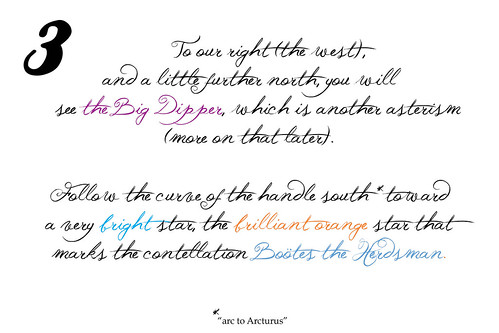 3
To our right (the west),
and a little further north, you will
see the Big Dipper, which is another asterism
(more on that later).
Follow the curve of the handle south * toward
a very bright star, the brilliant orange star that
marks the contellation Boötes the Herdsman.
*"arc to Arcturus"